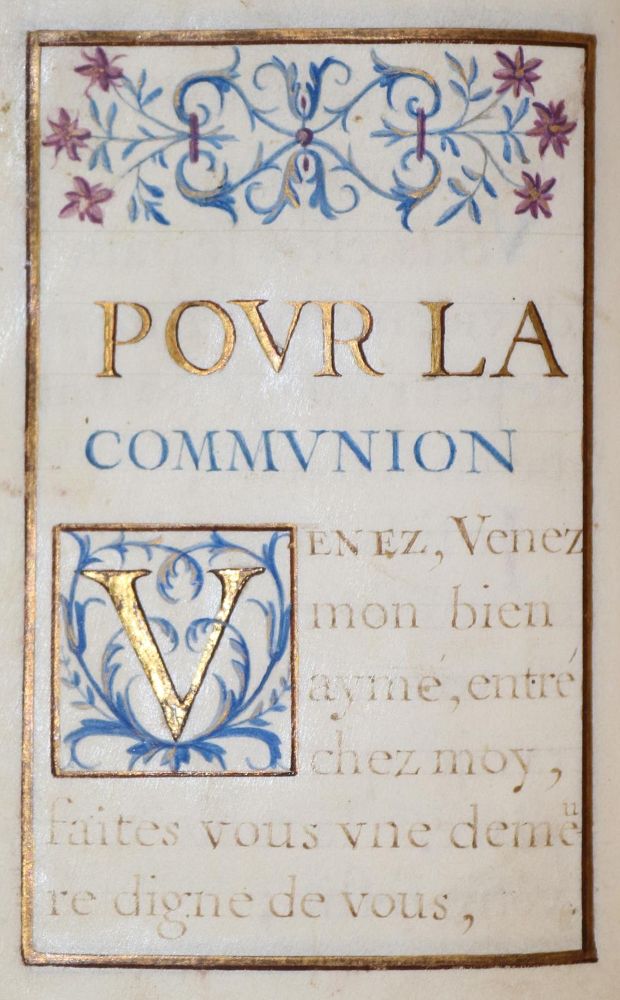 POVR LA
COMMVNION
VENEZ, Venez
mon bien
aymé, entré
chez moy,
faites vous vne demeu
re digne de vous,